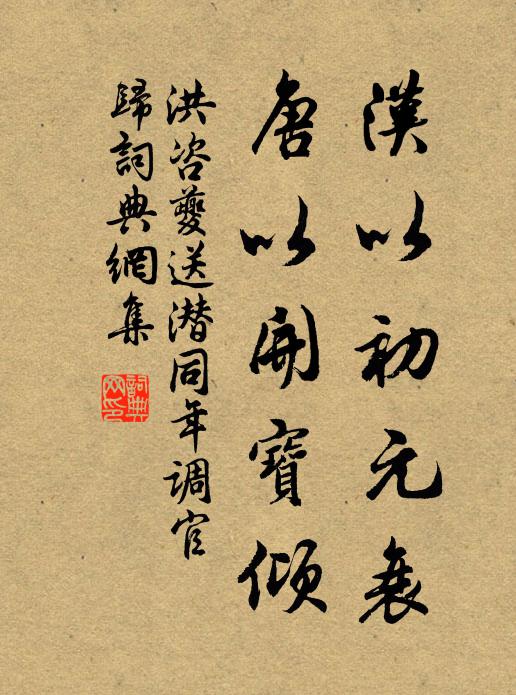 漢以初元衰
唐以開寶傾
洪咨夔送潛同年調官
歸詞典網集
詞典
网印